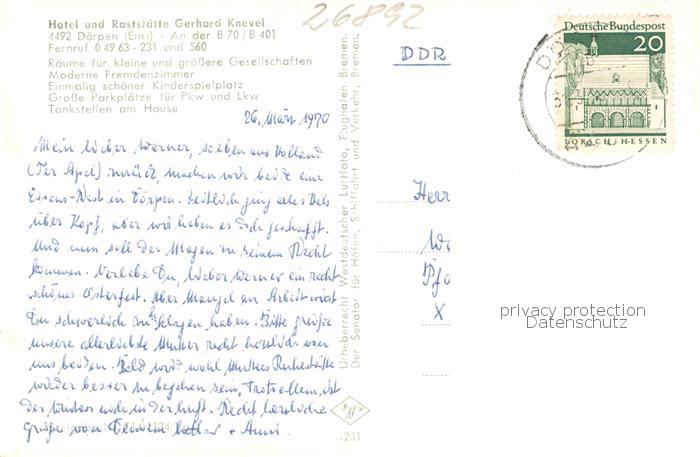 26892
Hotel und Raststätte Gerhard Knevel
4492 Dörpen (Ems) - An der B 70 / B 401
Fernruf 0 49 63 - 231 und 560
Räume für kleine und größere Gesellschaften
Moderne Fremdenzimmer
Einmalig schöner Kinderspielplatz
Große Parkplätze für Pkw und Lkw
Tankstellen am Hause
26. März 1970
Mein lieber Werner, soeben aus Holland
(Ter Apel) zurück, machen wir beide eine
Essens-Rast in Dörpen. Zeitlich ging alles
über Kopf, aber wir haben es doch geschafft.
Und nun soll der Magen zu seinem Recht
kommen. Verlebe Du, lieber Werner ein recht
schönes Osterfest. Über Mangel an Arbeit wirst
Du schwerlich zu klagen haben. Bitte grüße
unsere allerliebste Mutter recht herzlich von
uns beiden. Bald wird wohl Mutters Ruhestätte
wieder besser zu begehen sein. Trotz allem ist
der Winter noch in der Luft. Recht herzliche
Grüße von Deinem Lothar + Anni.
Urheberrecht Westdeutscher Luftfoto, Flughafen Bremen.
Der Senator für Häfen, Schiffahrt und Verkehr, Bremen.
1231
DDR
Deutsche Bundespost
20
LORSCH/HESSEN
Herr
X
privacy protection
Datenschutz